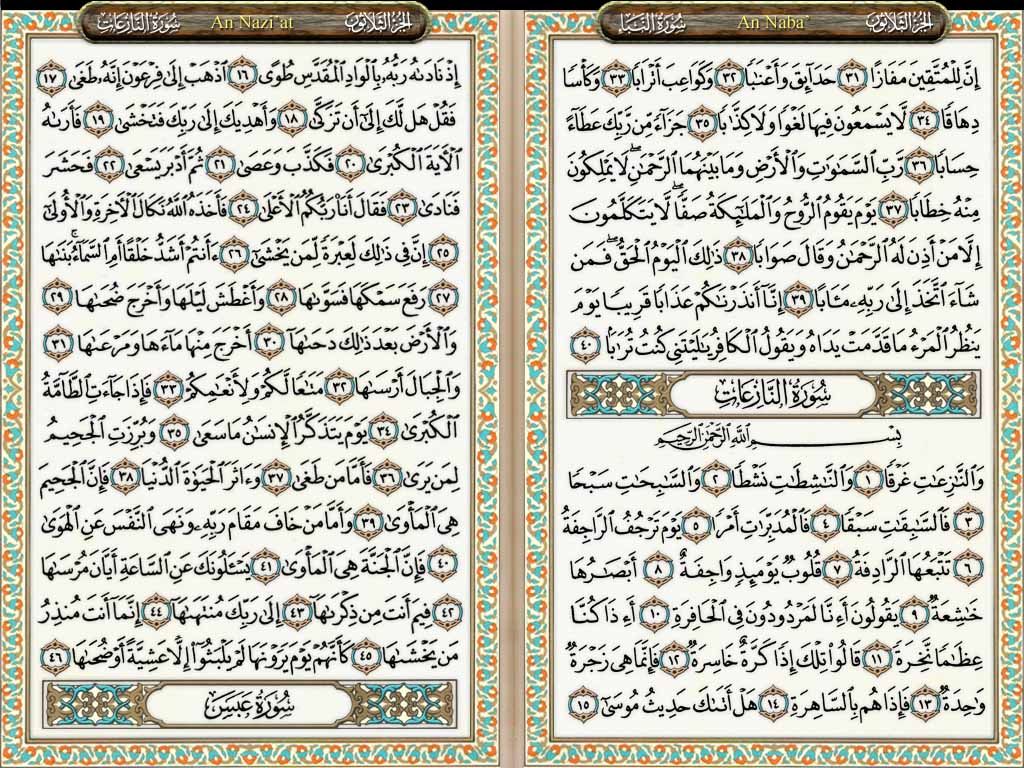 سُورَةُ النَّبَإِ An Naba` الجزء الثلاثون
إِنَّ لِلْمُتَّقِينَ مَفَازًا ٣١ حَدَآئِقَ وَأَعْنَـٰبًا ٣٢ وَكَوَاعِبَ أَتْرَابًا ٣٣ وَكَأْسًا
دِهَاقًا ٣٤ لَّا يَسْمَعُونَ فِيهَا لَغْوًا وَلَا كِذَّٰبًا ٣٥ جَزَآءً مِّن رَّبِّكَ عَطَآءً
حِسَابًا ٣٦ رَّبِّ السَّمَـٰوَٰتِ وَالْأَرْضِ وَمَا بَيْنَهُمَا الرَّحْمَـٰنِ ۖ لَا يَمْلِكُونَ
مِنْهُ خِطَابًا ٣٧ يَوْمَ يَقُومُ الرُّوحُ وَالْمَلَـٰٓئِكَةُ صَفًّا ۖ لَّا يَتَكَلَّمُونَ
إِلَّا مَنْ أَذِنَ لَهُ الرَّحْمَـٰنُ وَقَالَ صَوَابًا ٣٨ ذَٰلِكَ الْيَوْمُ الْحَقُّ ۖ فَمَن
شَآءَ اتَّخَذَ إِلَىٰ رَبِّهِ مَـَٔابًا ٣٩ إِنَّآ أَنذَرْنَـٰكُمْ عَذَابًا قَرِيبًا يَوْمَ
يَنظُرُ الْمَرْءُ مَا قَدَّمَتْ يَدَاهُ وَيَقُولُ الْكَافِرُ يَـٰلَيْتَنِي كُنتُ تُرَٰبًا ٤٠
سُورَةُ النَّازِعَاتِ
بِسْمِ اللَّهِ الرَّحْمَـٰنِ الرَّحِيمِ
وَالنَّـٰزِعَـٰتِ غَرْقًا ١ وَالنَّـٰشِطَـٰتِ نَشْطًا ٢ وَالسَّـٰبِحَـٰتِ سَبْحًا
٣ فَالسَّـٰبِقَـٰتِ سَبْقًا ٤ فَالْمُدَبِّرَٰتِ أَمْرًا ٥ يَوْمَ تَرْجُفُ الرَّاجِفَةُ
٦ تَتْبَعُهَا الرَّادِفَةُ ٧ قُلُوبٌ يَوْمَئِذٍ وَاجِفَةٌ ٨ أَبْصَـٰرُهَا
خَـٰشِعَةٌ ٩ يَقُولُونَ أَءِنَّا لَمَرْدُودُونَ فِي الْحَافِرَةِ ١٠ أَءِذَا كُنَّا
عِظَـٰمًا نَّخِرَةً ١١ قَالُوا تِلْكَ إِذًا كَرَّةٌ خَاسِرَةٌ ١٢ فَإِنَّمَا هِيَ زَجْرَةٌ
وَٰحِدَةٌ ١٣ فَإِذَا هُم بِالسَّاهِرَةِ ١٤ هَلْ أَتَىٰكَ حَدِيثُ مُوسَىٰٓ ١٥
سُورَةُ النَّازِعَاتِ An Nazi`at الجزء الثلاثون
إِذْ نَادَىٰهُ رَبُّهُ بِالْوَادِ الْمُقَدَّسِ طُوًى ١٦ اذْهَبْ إِلَىٰ فِرْعَوْنَ إِنَّهُ طَغَىٰ ١٧
فَقُلْ هَل لَّكَ إِلَىٰٓ أَن تَزَكَّىٰ ١٨ وَأَهْدِيَكَ إِلَىٰ رَبِّكَ فَتَخْشَىٰ ١٩ فَأَرَىٰهُ
الْآيَةَ الْكُبْرَىٰ ٢٠ فَكَذَّبَ وَعَصَىٰ ٢١ ثُمَّ أَدْبَرَ يَسْعَىٰ ٢٢ فَحَشَرَ
فَنَادَىٰ ٢٣ فَقَالَ أَنَا رَبُّكُمُ الْأَعْلَىٰ ٢٤ فَأَخَذَهُ اللَّهُ نَكَالَ الْآخِرَةِ وَالْأُولَىٰٓ
٢٥ إِنَّ فِي ذَٰلِكَ لَعِبْرَةً لِّمَن يَخْشَىٰٓ ٢٦ ءَأَنتُمْ أَشَدُّ خَلْقًا أَمِ السَّمَآءُ ۚ بَنَىٰهَا
٢٧ رَفَعَ سَمْكَهَا فَسَوَّىٰهَا ٢٨ وَأَغْطَشَ لَيْلَهَا وَأَخْرَجَ ضُحَىٰهَا ٢٩
وَالْأَرْضَ بَعْدَ ذَٰلِكَ دَحَىٰهَآ ٣٠ أَخْرَجَ مِنْهَا مَآءَهَا وَمَرْعَىٰهَا ٣١
وَالْجِبَالَ أَرْسَىٰهَا ٣٢ مَتَـٰعًا لَّكُمْ وَلِأَنْعَـٰمِكُمْ ٣٣ فَإِذَا جَآءَتِ الطَّآمَّةُ
الْكُبْرَىٰ ٣٤ يَوْمَ يَتَذَكَّرُ الْإِنسَـٰنُ مَا سَعَىٰ ٣٥ وَبُرِّزَتِ الْجَحِيمُ
لِمَن يَرَىٰ ٣٦ فَأَمَّا مَن طَغَىٰ ٣٧ وَءَاثَرَ الْحَيَوٰةَ الدُّنْيَا ٣٨ فَإِنَّ الْجَحِيمَ
هِيَ الْمَأْوَىٰ ٣٩ وَأَمَّا مَنْ خَافَ مَقَامَ رَبِّهِ وَنَهَى النَّفْسَ عَنِ الْهَوَىٰ
٤٠ فَإِنَّ الْجَنَّةَ هِيَ الْمَأْوَىٰ ٤١ يَسْـَٔلُونَكَ عَنِ السَّاعَةِ أَيَّانَ مُرْسَىٰهَا
٤٢ فِيمَ أَنتَ مِن ذِكْرَىٰهَآ ٤٣ إِلَىٰ رَبِّكَ مُنتَهَىٰهَآ ٤٤ إِنَّمَآ أَنتَ مُنذِرُ
مَن يَخْشَىٰهَا ٤٥ كَأَنَّهُمْ يَوْمَ يَرَوْنَهَا لَمْ يَلْبَثُوٓا إِلَّا عَشِيَّةً أَوْ ضُحَىٰهَا ٤٦
سُورَةُ عَبَسَ